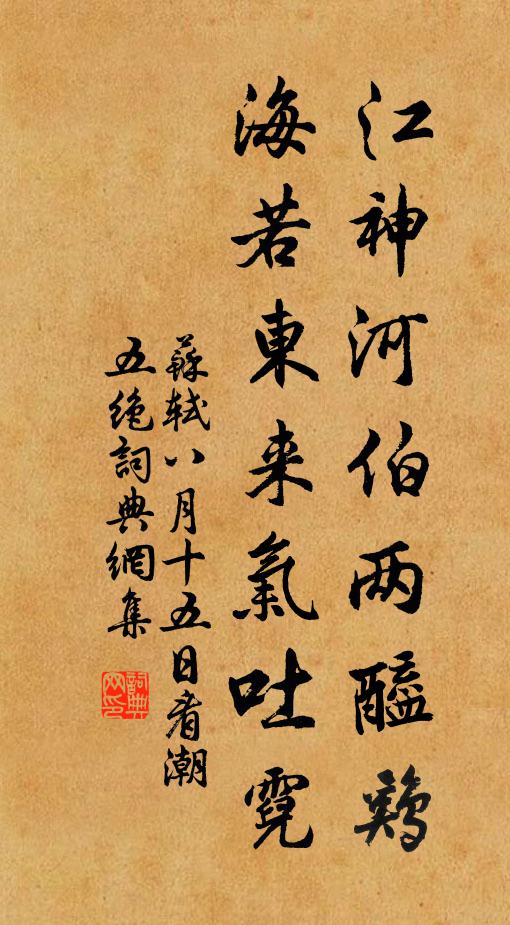 江神河伯两醯鷄
海若東来氣吐霓
蘇軾八月十五日看潮
五絶詞典網集
詞典网印